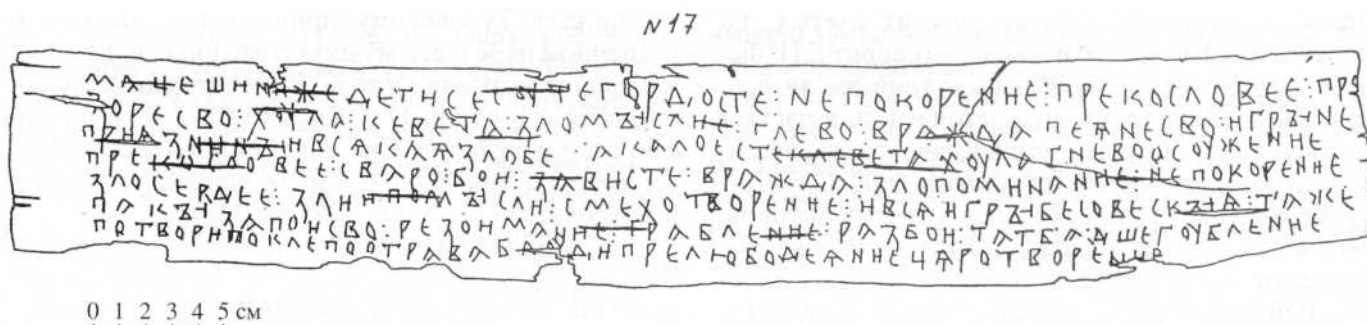 №17
МАЧЕШИНИЖЕ ДЕТИ СЕ СѸТЕ ГОРДОСТЕ : НЕПОКОРЕНИЕ : ПРЕКОСЛОВЕЕ : ПРЕ
ЗОРЕСВО : ХУЛА : КЛЕВЕТА : ЗЛОМꙐСЛИЕ : ГНЕВО : ВРАЖДА ПЕѦНЕСВО : ИГРꙐ НЕ
И ВСѦКАѦ ЗЛОБЕ : КЛЕВЕТА ХОУЛА ГНЕВО ОСОУЖЕНИЕ
ПРЕКОСЛОВЕЕ : СВАРО : БОИ : ЗАВИСТЕ : ВРАЖДА : ЗЛОПОМИНАНИЕ : НЕПОКОРЕНИЕ
ЗЛОСЕРДЕЕ : ЗЛИИ ПОМꙐСЛИ : СМЕХОТВОРЕНИЕ : И ВСѦ ИГРꙐ БЕСОВЕСКꙐѦ : ТАЖЕ
ПАКꙐ ЗАПОИСВО : РЕЗОИМАНИЕ : ГРАБЛЕНИЕ : РАЗБОИ : ТАТБА : ДШЕГОУБЛЕНИЕ
ПОТВОРИ ПОКЛЕПО ОТРАВА И ПРЕЛЮБОДЕѦНИЕ ЦѦРОТВОРЕНИЕ
0 1 2 3 4 5 см